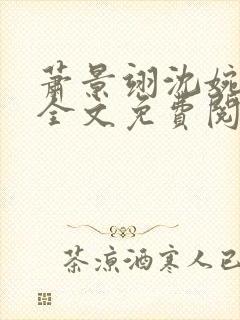 萧景翊沈婉
全文免費閱
茶涼酒寒人已